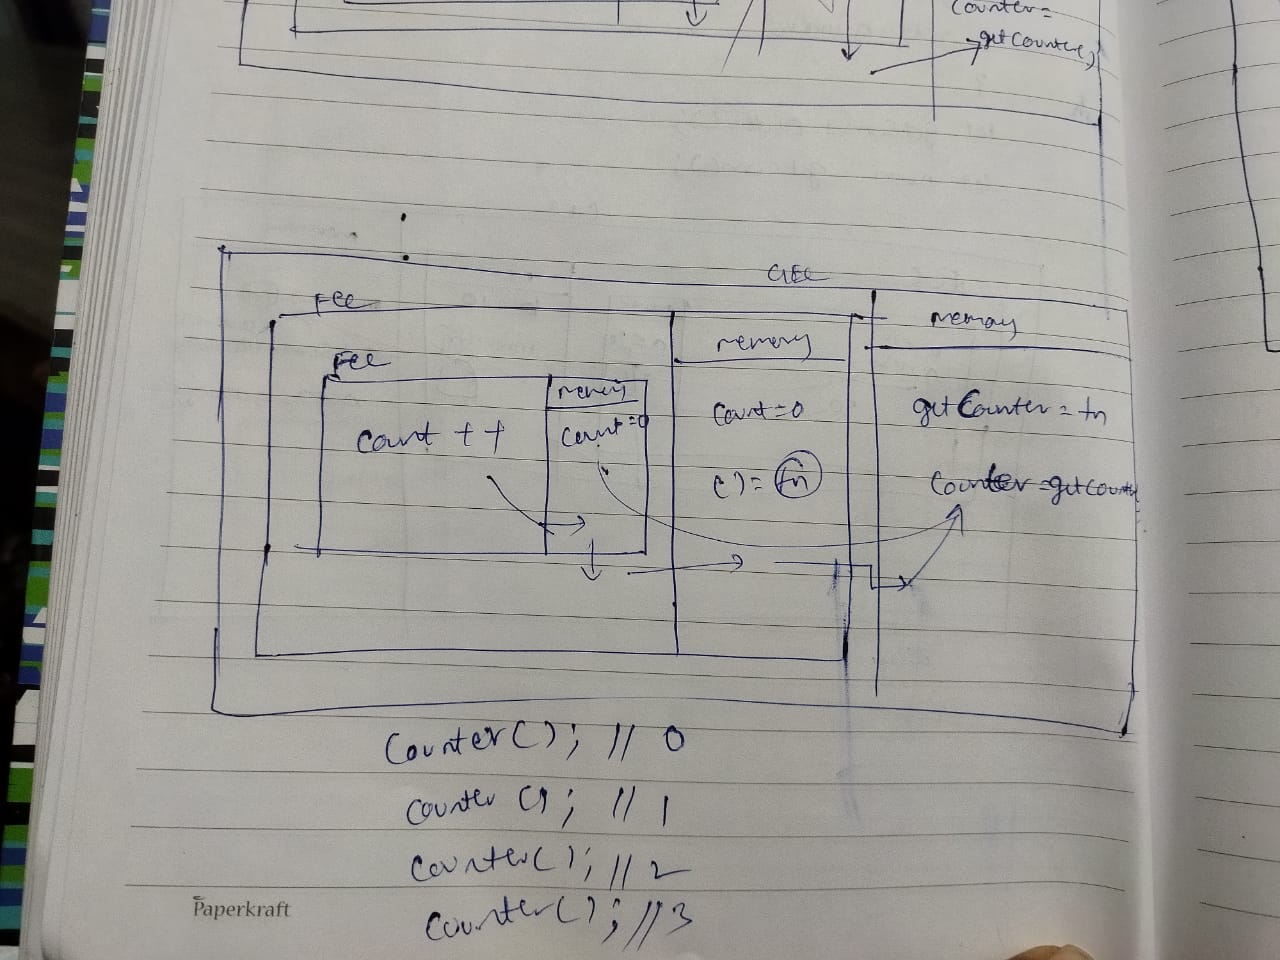 Counter=
getCounter()
GEC
FEC
memory
memory
FEC
memory
count=0
getCounter = fn
count ++
count=0
() = fn
Counter =getCounte
Counter(); // 0
Counter(); // 1
Counter(); // 2
Counter(); // 3
Paperkraft